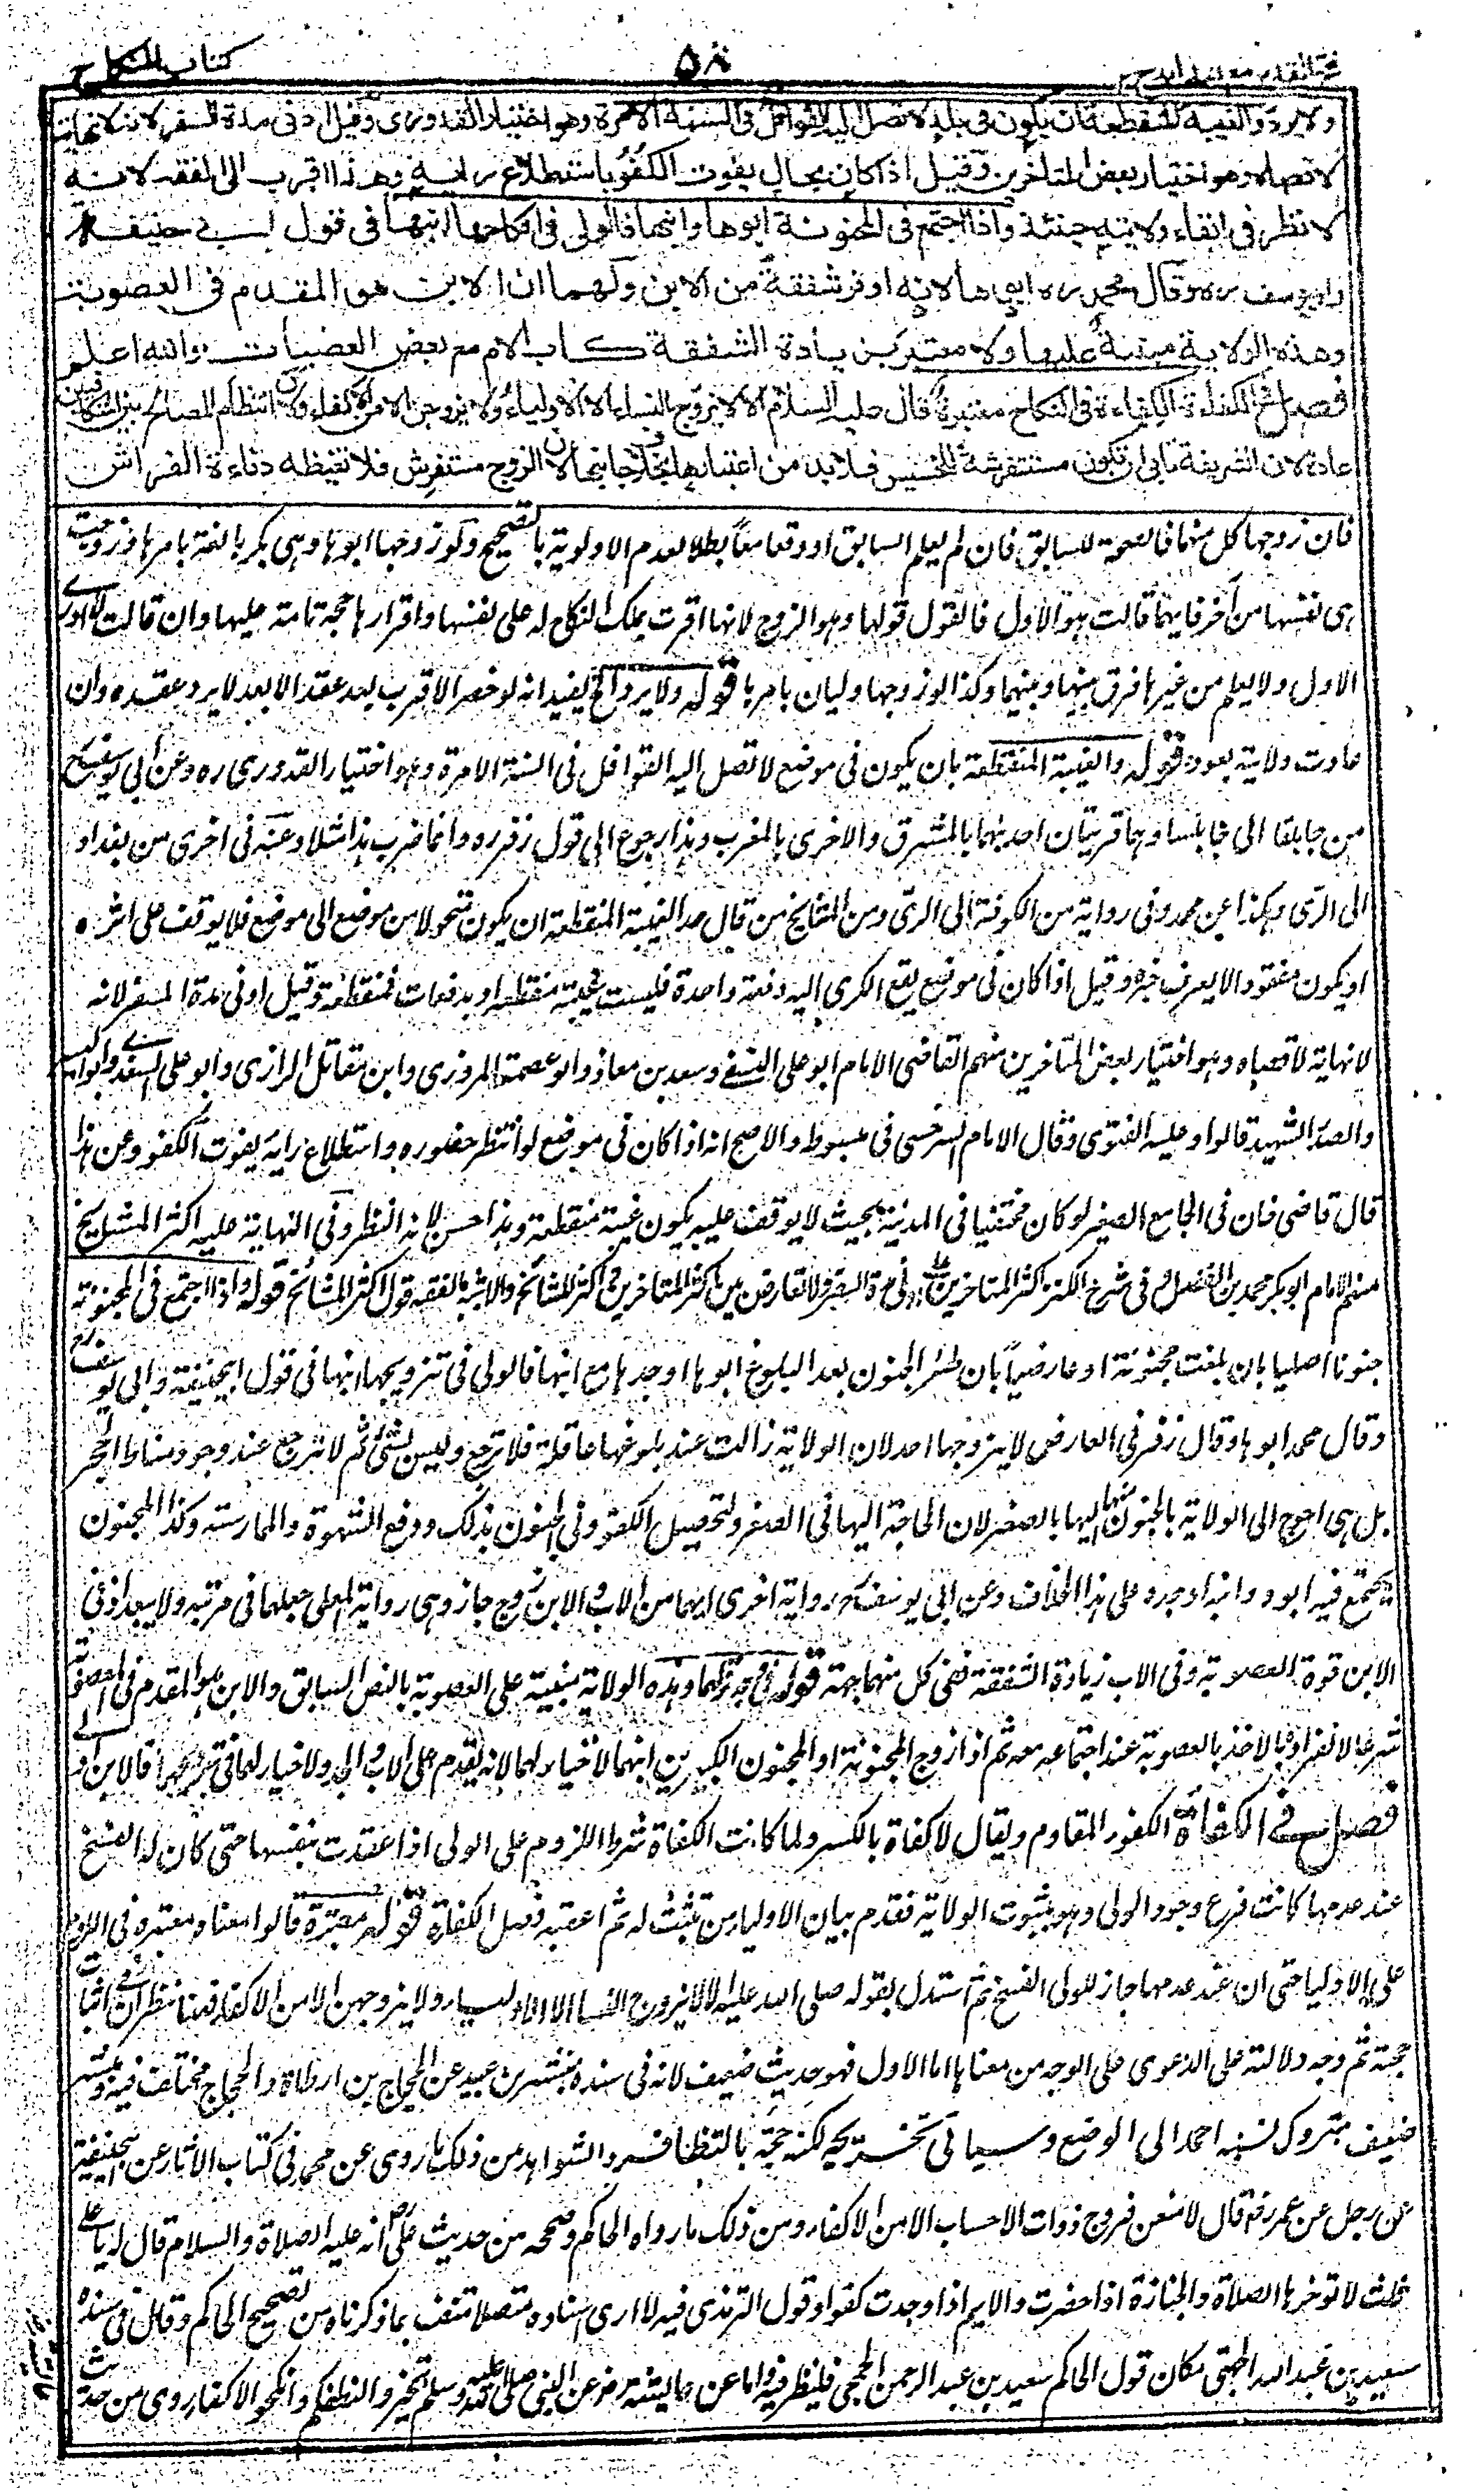 فتح القدير مع الهداية ج ٢
٥٨٠
كتاب النكاح
ولا يرد والغيبة المنقطعة ان يكون في بلد لا تصل اليه القوافل في السنة الا مرة وهو اختيار القدوري وقيل ادنى مدة السفر لانه لا نهاية
لاقصاه وهو اختيار بعض المتاخرين وقيل اذا كان بحال يفوت الكفو باستطلاع رايه وهذا اقرب الى الفقه لانه
لا نظر في ابقاء ولايته حينئذ واذا اجتمع في المجنونة ابوها وابنها فالولي في انكاحها ابنها في قول ابي حنيفة
وابي يوسف ره وقال محمد ره ابوها لانه اوفر شفقة من الابن ولهما ان الابن هو المقدم في العصوبة
وهذه الولاية مبنية عليها ولا معتبر بزيادة الشفقة كاب الام مع بعض العصبات والله اعلم
فصل في الكفاءة الكفاءة في النكاح معتبرة قال عليه السلام الا لا يزوج النساء الا الاولياء ولا يزوجن الا من الاكفاء ولان انتظام المصالح بين المتكافئين
عادة لان الشريفة تابى ان تكون مستفرشة للخسيس فلا بد من اعتبارها بخلاف جانبها لان الزوج مستفرش فلا تغيظه دناءة الفراش
فان زوجها كل منهما فالصحة للسابق فان لم يعلم السابق او وقعا معا بطلا لعدم الاولوية بالتصحيح ولو زوجها ابوها وهي بكر بالغة بامرها وزوجت
هي نفسها من آخر فايهما قالت هو الاول فالقول قولها وهو الزوج لانها اقرت بملك النكاح له على نفسها واقرارها حجة تامة عليها وان قالت لا ادري
الاول ولا يعلم من غيرها فرق بينها وبينهما وكذا لو زوجها وليان بامرها قوله ولا يرد الخ يفيد انه لو حضر الاقرب بعد عقد الابعد لا يرد عقده وان
عادت ولايته بعوده قوله والغيبة المنقطعة بان يكون في موضع لا تصل اليه القوافل في السنة الا مرة وهو اختيار القدوري ره وعن ابي يوسف رح
من جابلقا الى جابلسا وهما قريتان احدهما بالمشرق والاخرى بالمغرب وهذا رجوع الى قول زفر ره وانما ضرب هذا مثلا وعنه في اخرى من بغداد
الى الري وهكذا عن محمد وفي رواية من الكوفة الى الري ومن المشايخ من قال حد الغيبة المنقطعة ان يكون متحولا من موضع الى موضع فلا يوقف على اثره
او يكون مفقودا لا يعرف خبره وقيل اذا كان في موضع يقع الكرى اليه دفعة واحدة فليست غيبة منقطعة او بدفعات فمنقطعة وقيل ادنى مدة السفر لانه
لا نهاية لاقصاه وهو اختيار بعض المتاخرين منهم القاضي الامام ابو علي النسفي وسعد بن معاذ وابو عصمة المروزي وابن مقاتل الرازي وابو علي السغدي وابو اليسر
والصدر الشهيد قالوا وعليه الفتوى وقال الامام السرخسي في مبسوط والاصح انه اذا كان في موضع لو انتظر حضوره واستطلاع رايه يفوت الكفو وعن هذا
قال قاضي خان في الجامع الصغير لو كان مختفيا في المدينة بحيث لا يوقف عليه يكون غيبة منقطعة وهذا حسن لانه النظر وفي النهاية عليه اكثر المشايخ
منهم الامام ابو بكر محمد بن الفضل وفي شرح الكنز اكثر المتاخرين على ادنى مدة السفر ولا تعارض بين اكثر المتاخرين واكثر المشائخ والاشبه بالفقه قول اكثر المشائخ قوله واذا اجتمع في المجنونة
جنونا اصليا بان بلغت مجنونة او عارضيا بان طرأ الجنون بعد البلوغ ابوها او جدها مع ابنها فالولي في تزويجها ابنها في قول ابي حنيفة وابي يوسف رح
وقال محمد ابوها وقال زفر في العارضي لا يزوجها احد لان الولاية زالت عند بلوغها عاقلة فلا ترجع وليس بشئ ثم لا ترجع عند وجود مناط الحجر
بل هي احوج الى الولاية بالجنون منها اليها بالصغر لان الحاجة اليها في الصغر لتحصيل الكفو وفي الجنون لذلك ودفع الشهوة والممارسة وكذا المجنون
يجتمع فيه ابوه وابنه او جده على هذا الخلاف وعن ابي يوسف رح رواية اخرى ايهما من الاب والابن زوج جاز وهي رواية المعلى جعلهما في مرتبة ولا يبعد اذ في
الابن قوة العصوبة وفي الاب زيادة الشفقة ففي كل منهما جهة قوله في وجه قولهما وهذه الولاية مبنية على العصوبة بالنص السابق والابن هو المقدم في العصوبة
شرعا لانفراده بالاخذ بالعصوبة عند اجتماعه معه ثم اذا زوج المجنونة او المجنون الكبيرين ابنهما لا خيار لهما لانه يقدم على الاب والجد ولا خيار لهما في تزويجهما فالابن اولى
فصل في الكفاءة الكفو المقاوم ويقال لا كفاة بالكسر ولما كانت الكفاة شرط اللزوم على الولي اذا عقدت بنفسها حتى كان له الفسخ
عند عدمها كانت فرع وجود الولي وهو بثبوت الولاية فقدم بيان الاولياء من تثبت له ثم اعقبه فصل الكفاة قوله معتبرة قالوا معناه معتبرة في اللزوم
على الاوليا حتى ان عند عدمها جاز للولي الفسخ ثم استدل بقوله صلى الله عليه الا لا يزوج النساء الا الاولياء ولا يزوجهن الا من الاكفاء فهنا نظران في اثبات
حجته ثم وجه دلالته على الدعوى على الوجه من معناها اما الاول فهو حديث ضعيف لانه في سنده مبشر بن عبيد عن الحجاج بن ارطاة والحجاج مختلف فيه ومبشر
ضعيف متروك نسبه احمد الى الوضع وسياتي تخريجه لكنه حجة بالتظافر والشواهد من ذلك ما روى عن محمد في كتاب الاثار عن ابي حنيفة
عن رجل عن عمر رض قال لامنعن فروج ذوات الاحساب الا من الاكفاء ومن ذلك ما رواه الحاكم وصححه من حديث علي رض انه عليه الصلاة والسلام قال له يا علي
ثلث لا تؤخرها الصلاة والجنازة اذا حضرت والايم اذا وجدت كفوا وقول الترمذي فيه لا ارى اسناده متصلا منتف بما ذكرناه من تصحيح الحاكم وقال في سنده
سعيد بن عبد الله الجهني مكان قول الحاكم سعيد بن عبد الرحمن الجمحي فلينظر فيه واما عن عائشة رض عن النبي صلى الله عليه وسلم تخيروا لنطفكم وانكحوا الاكفاء روى من حديث